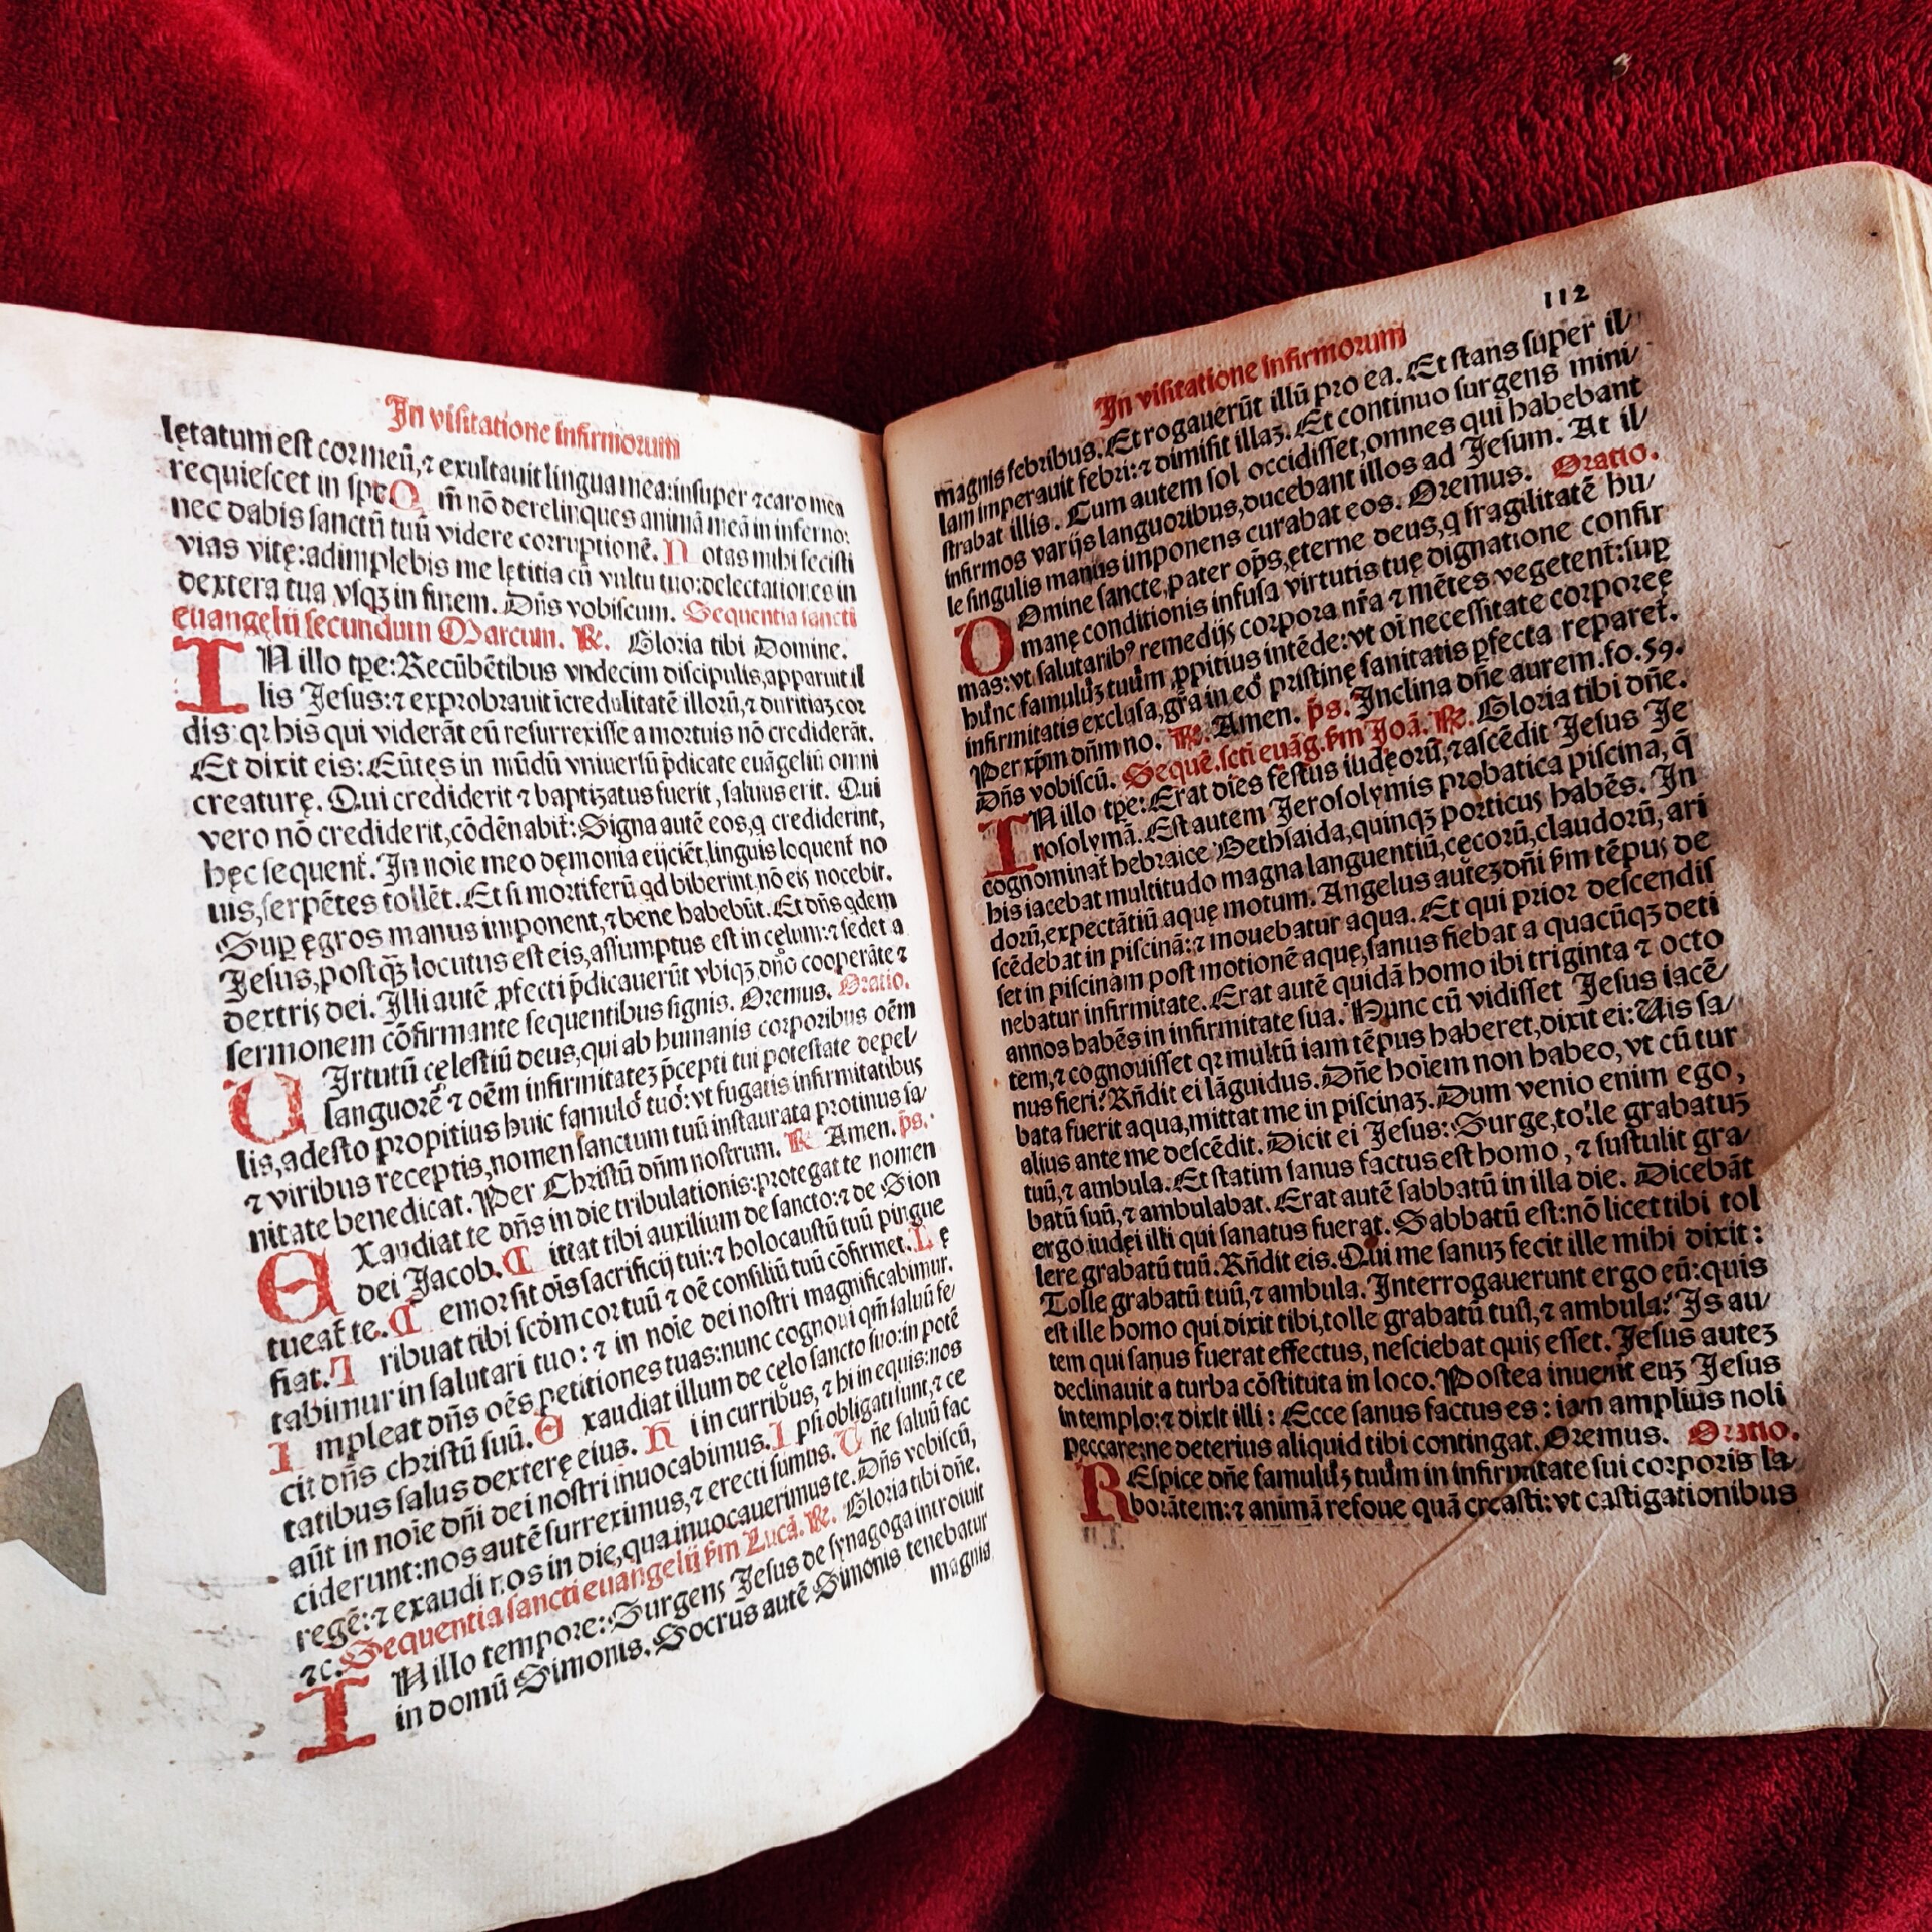 In visitatione infirmorum
lętatum est cor meū, ⁊ exultauit lingua mea: insuper ⁊ caro mea
requiescet in spe Q m̄ nō derelinques animā meā in inferno:
nec dabis sanctū tuū videre corruptionē. N otas mihi fecisti
vias vitę: adimplebis me lętitia cū vultu tuo: delectationes in
dextera tua vsqꝫ in finem. Dn̄s vobiscum. Sequentia sancti
euangelii secundum Marcum. ℟. Gloria tibi Domine.
IN illo tp̄e: Recūbētibus vndecim discipulis, apparuit il
lis Jesus: ⁊ exprobrauit īcredulitatē illorū, ⁊ duritiaꝫ cor
dis: qꝛ his qui viderāt eū resurrexisse a mortuis nō crediderāt.
Et dixit eis: Eūtes in mūdū vniuersū p̄dicate euāgeliū omni
creaturę. Qui crediderit ⁊ baptizatus fuerit, saluus erit. Qui
vero nō crediderit, cōdēnabit̄: Signa autē eos, q crediderint,
hęc sequent̄. In noīe meo dęmonia eijciēt, linguis loquent̄ no
uis, serpētes tollēt. Et si mortiferū qd biberint, nō eis nocebit.
Suꝑ ęgros manus imponent, ⁊ bene habebūt. Et dn̄s qdem
Jesus, postqꝫ̄ locutus est eis, assumptus est in cęlum: ⁊ sedet a
dextris dei. Illi autē ꝓfecti p̄dicauerūt vbiqꝫ, dn̄o cooperāte ⁊
sermonem cōfirmante sequentibus signis. Oremus. Oratio.
VIrtutū cęlestiū deus, qui ab humanis corporibus oēm
languorē ⁊ oēm infirmitateꝫ p̄cepti tui potestate depel/
lis, adesto propitius huic famulo tuo: vt fugatis infirmitatibus
⁊ viribus receptis, nomen sanctum tuū instaurata protinus sa/
nitate benedicat. Per Christū dn̄m nostrum. ℟ Amen. p̄s.
EXaudiat te dn̄s in die tribulationis: protegat te nomen
dei Jacob. M ittat tibi auxilium de sancto: ⁊ de Sion
tueat̄ te. M emor sit oīs sacrificij tui: ⁊ holocaustū tuū pingue
fiat. T ribuat tibi scd̄m cor tuū ⁊ oē consiliū tuū cōfirmet. L ę
tabimur in salutari tuo: ⁊ in noīe dei nostri magnificabimur.
I mpleat dn̄s oēs petitiones tuas: nunc cognoui qm̄ saluū fe/
cit dn̄s christū suū. E xaudiat illum de cęlo sancto suo: in potē
tatibus salus dexterę eius. H i in curribus, ⁊ hi in equis: nos
aūt in noīe dn̄i dei nostri inuocabimus. I psi obligati sunt, ⁊ ce
ciderunt: nos autē surreximus, ⁊ erecti sumus. D n̄e saluū fac
regē: ⁊ exaudi nos in die, qua inuocauerimus te. Dn̄s vobiscū,
⁊c. Sequentia sancti euangelij s̄m Lucā. ℟. Gloria tibi dn̄e.
IN illo tempore: Surgens Jesus de synagoga introiuit
in domū Simonis. Socrus autē Simonis tenebatur
magnis
112
In visitatione infirmorum
magnis febribus. Et rogauerūt illū pro ea. Et stans super il/
lam imperauit febri: ⁊ dimisit illaꝫ. Et continuo surgens mini/
strabat illis. Cum autem sol occidisset, omnes qui habebant
infirmos varijs languoribus, ducebant illos ad Jesum. At il/
le singulis manus imponens curabat eos. Oremus. Oratio.
DOmine sancte, pater op̄s, ęterne deus, q fragilitatē hu/
manę conditionis infusa virtutis tuę dignatione confir
mas: vt salutaribꝰ remedijs corpora nr̄a ⁊ mētes vegetent: suꝑ
hunc famulūꝫ tuūm ꝓpitius intēde: vt oī necessitate corporeę
infirmitatis exclusa, gr̄a in eo pristinę sanitatis ꝑfecta reparet̄.
Per xp̄m dn̄m no. ℟. Amen. p̄s. Inclina dn̄e aurem. fo. 59.
Dn̄s vobiscū. Sequē. scti euāg. s̄m Joā. ℟. Gloria tibi dn̄e.
IN illo tp̄e: Erat dies festus iudęorū, ⁊ ascēdit Jesus Je
rosolymā. Est autem Jerosolymis probatica piscina, q̄
cognominat̄ hebraice Bethsaida, quinqꝫ porticus habēs. In
his iacebat multitudo magna languentiū, cęcorū, claudorū, ari
dorū, expectātiū aquę motum. Angelus auteꝫ dn̄i s̄m tēpus de
scēdebat in piscinā: ⁊ mouebatur aqua. Et qui prior descendis
set in piscinam post motionē aquę, sanus fiebat a quacūqꝫ deti
nebatur infirmitate. Erat autē quidā homo ibi triginta ⁊ octo
annos habēs in infirmitate sua. Hunc cū vidisset Jesus iacē/
tem, ⁊ cognouisset qꝛ multū iam tēpus haberet, dixit ei: Uis sa/
nus fieri? Rn̄dit ei lāguidus. Dn̄e hoīem non habeo, vt cū tur
bata fuerit aqua, mittat me in piscinaꝫ. Dum venio enim ego,
alius ante me descēdit. Dicit ei Jesus: Surge, tolle grabatuꝫ
tuū, ⁊ ambula. Et statim sanus factus est homo, ⁊ sustulit gra/
batū suū, ⁊ ambulabat. Erat autē sabbatū in illa die. Dicebāt
ergo iudęi illi qui sanatus fuerat. Sabbatū est: nō licet tibi tol
lere grabatū tuū. Rn̄dit eis. Qui me sanuꝫ fecit ille mihi dixit:
Tolle grabatū tuū, ⁊ ambula. Interrogauerunt ergo eū: quis
est ille homo qui dixit tibi, tolle grabatū tuū, ⁊ ambula? Is au/
tem qui sanus fuerat effectus, nesciebat quis esset. Jesus auteꝫ
declinauit a turba cōstituta in loco. Postea inuenit euꝫ Jesus
in templo: ⁊ dixit illi: Ecce sanus factus es: iam amplius noli
peccare: ne deterius aliquid tibi contingat. Oremus. Oratio.
REspice dn̄e famulūꝫ tuūm in infirmitate sui corporis la/
borātem: ⁊ animā refoue quā creasti: vt castigationibus